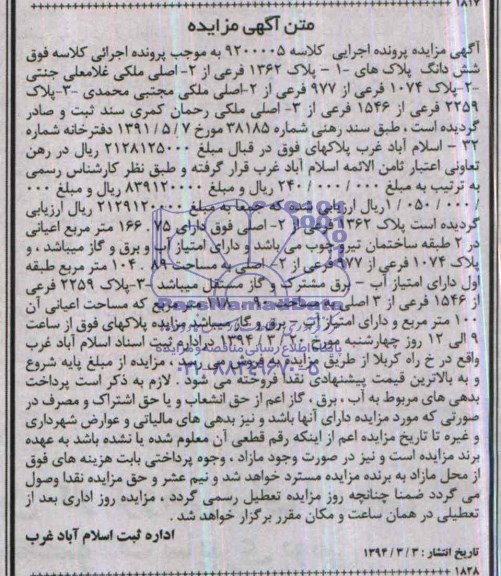 ۱۸۱۷
متن آگهی مزایده
آگهی مزایده پرونده اجرایی کلاسه ۹۲۰۰۰۰۵ به موجب پرونده اجرائی کلاسه فوق
شش دانگ پلاک های ۱- پلاک ۱۳۶۲ فرعی از ۲- اصلی ملکی غلامعلی جنتی
۲-پلاک ۱۰۷۴ فرعی از ۹۷۷ فرعی از ۲-اصلی ملکی مجتبی محمدی ۳-پلاک
۲۲۵۹ فرعی از ۱۵۴۶ فرعی از ۳- اصلی ملکی رحمان کمری سند ثبت و صادر
گردیده است ، طبق سند رهنی شماره ۳۸۱۸۵ مورخ ۷ / ۵ / ۱۳۹۱ دفترخانه شماره
۳۲ - اسلام آباد غرب پلاکهای فوق در قبال مبلغ ۲۱۲۸۱۲۵۰۰۰ ریال در رهن
تعاونی اعتبار ثامن الائمه اسلام آباد غرب قرار گرفته و طبق نظر کارشناس رسمی
به ترتیب به مبلغ ۰۰۰ / ۰۰۰ / ۲۴۰ ریال و مبلغ ۸۳۹۱۲۰۰۰۰ ریال و مبلغ ۰۰۰
/ ۰۰۰ / ۰۵۰ / ۱ریال ارزیابی شده که جمعا به مبلغ ۲۱۲۹۱۲۰۰۰۰ ریال ارزیابی
گردیده است پلاک ۱۳۶۲ فرعی از ۲- اصلی فوق دارای ۷۵ . ۱۶۶ متر مربع اعیانی
در ۲ طبقه ساختمان تیر و چوب می باشد و دارای امتیاز آب و برق و گاز میباشد ، و
پلاک ۱۰۷۴ فرعی از ۹۷۷ فرعی از ۲- اصلی به مساحت ۸۹ . ۱۰۴ متر مربع طبقه
اول دارای امتیاز آب - برق مشترک و گاز مستقل میباشد ۳-پلاک ۲۲۵۹ فرعی
از ۱۵۴۶ فرعی از ۳ اصلی به مساحت ۹۰ . ۱۱۸ متر مربع که مساحت اعیانی آن
۱۰۰ متر مربع و دارای امتیاز آب - برق و گاز میباشد مزایده پلاکهای فوق از ساعت
۹ الی ۱۲ روز چهارشنبه مورخ ۲۰ / ۳ / ۱۳۹۴ در اداره ثبت اسناد اسلام آباد غرب
واقع در خ راه کربلا از طریق مزایده به فروش می رسد ، مزایده از مبلغ پایه شروع
و به بالاترین قیمت پیشنهادی نقدا فروخته می شود . لازم به ذکر است پرداخت
بدهی های مربوط به آب ، برق ، گاز اعم از حق انشعاب و یا حق اشتراک و مصرف در
صورتی که مورد مزایده دارای آنها باشد و نیز بدهی های مالیاتی و عوارض شهرداری
و غیره تا تاریخ مزایده اعم از اینکه رقم قطعی آن معلوم شده یا نشده باشد به عهده
برنده مزایده است و نیز در صورت وجود مازاد ، وجوه پرداختی بابت هزینه های فوق
از محل مازاد به برنده مزایده مسترد خواهد شد و نیم عشر و حق مزایده نقدا وصول
می گردد ضمنا چنانچه روز مزایده تعطیل رسمی گردد ، مزایده روز اداری بعد از
تعطیلی در همان ساعت و مکان مقرر برگزار خواهد شد .
اداره ثبت اسلام آباد غرب
تاریخ انتشار : ۳ / ۳ / ۱۳۹۴
۱۸۲۸
ParsNamadData
پایگاه اطلاع رسانی مناقصه و مزایده
۰۲۱-۸۸۳۴۹۶۷۰-۵